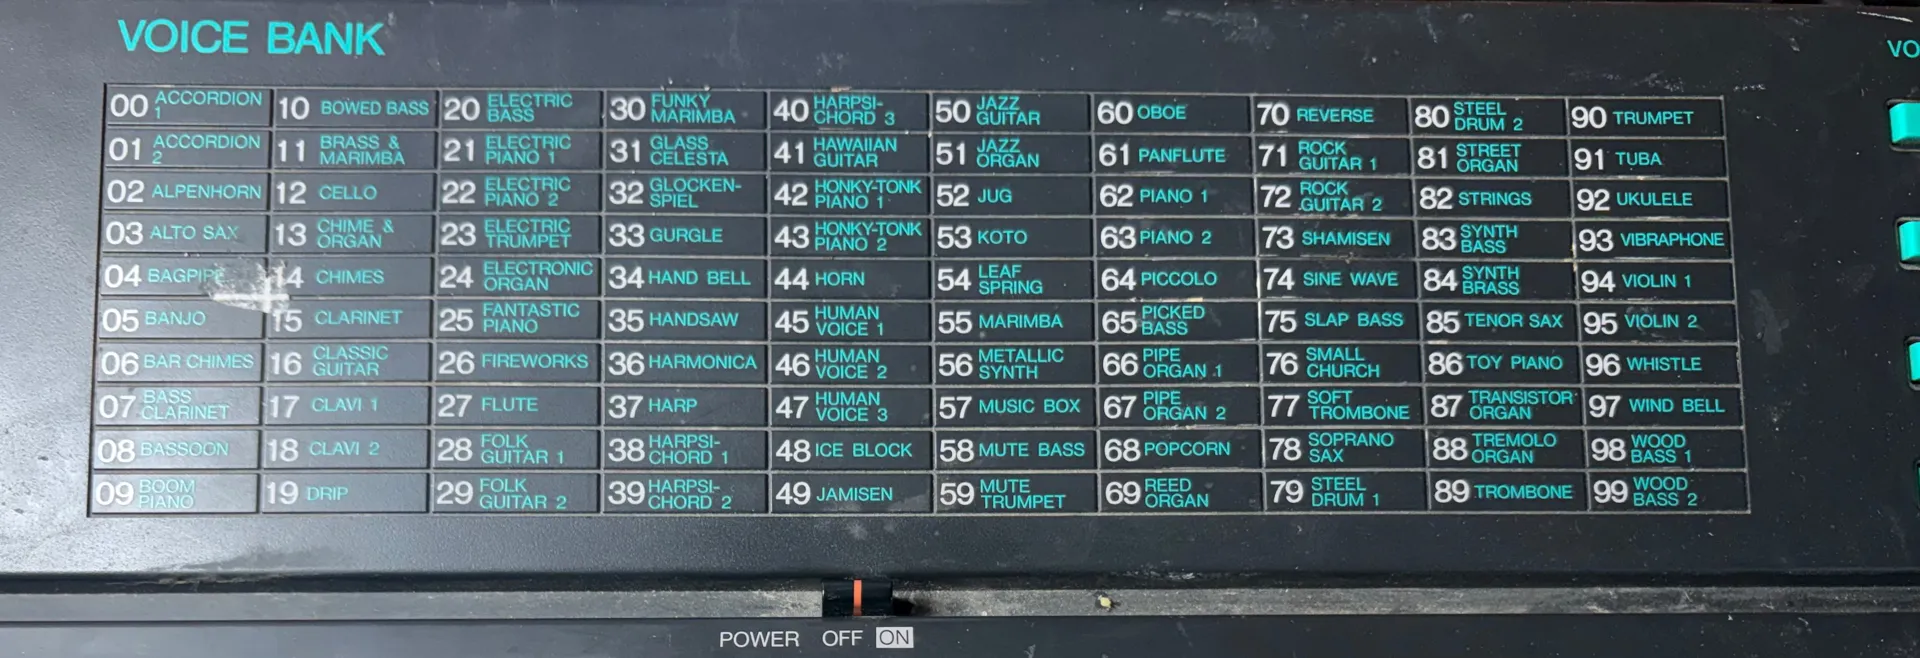 VOICE BANK
VO
00 ACCORDION 1
10 BOWED BASS
20 ELECTRIC BASS
30 FUNKY MARIMBA
40 HARPSI-CHORD 3
50 JAZZ GUITAR
60 OBOE
70 REVERSE
80 STEEL DRUM 2
90 TRUMPET
01 ACCORDION 2
11 BRASS & MARIMBA
21 ELECTRIC PIANO 1
31 GLASS CELESTA
41 HAWAIIAN GUITAR
51 JAZZ ORGAN
61 PANFLUTE
71 ROCK GUITAR 1
81 STREET ORGAN
91 TUBA
02 ALPENHORN
12 CELLO
22 ELECTRIC PIANO 2
32 GLOCKEN-SPIEL
42 HONKY-TONK PIANO 1
52 JUG
62 PIANO 1
72 ROCK GUITAR 2
82 STRINGS
92 UKULELE
03 ALTO SAX
13 CHIME & ORGAN
23 ELECTRIC TRUMPET
33 GURGLE
43 HONKY-TONK PIANO 2
53 KOTO
63 PIANO 2
73 SHAMISEN
83 SYNTH BASS
93 VIBRAPHONE
04 BAGPIPE
14 CHIMES
24 ELECTRONIC ORGAN
34 HAND BELL
44 HORN
54 LEAF SPRING
64 PICCOLO
74 SINE WAVE
84 SYNTH BRASS
94 VIOLIN 1
05 BANJO
15 CLARINET
25 FANTASTIC PIANO
35 HANDSAW
45 HUMAN VOICE 1
55 MARIMBA
65 PICKED BASS
75 SLAP BASS
85 TENOR SAX
95 VIOLIN 2
06 BAR CHIMES
16 CLASSIC GUITAR
26 FIREWORKS
36 HARMONICA
46 HUMAN VOICE 2
56 METALLIC SYNTH
66 PIPE ORGAN 1
76 SMALL CHURCH
86 TOY PIANO
96 WHISTLE
07 BASS CLARINET
17 CLAVI 1
27 FLUTE
37 HARP
47 HUMAN VOICE 3
57 MUSIC BOX
67 PIPE ORGAN 2
77 SOFT TROMBONE
87 TRANSISTOR ORGAN
97 WIND BELL
08 BASSOON
18 CLAVI 2
28 FOLK GUITAR 1
38 HARPSI-CHORD 1
48 ICE BLOCK
58 MUTE BASS
68 POPCORN
78 SOPRANO SAX
88 TREMOLO ORGAN
98 WOOD BASS 1
09 BOOM PIANO
19 DRIP
29 FOLK GUITAR 2
39 HARPSI-CHORD 2
49 JAMISEN
59 MUTE TRUMPET
69 REED ORGAN
79 STEEL DRUM 1
89 TROMBONE
99 WOOD BASS 2
POWER OFF ON